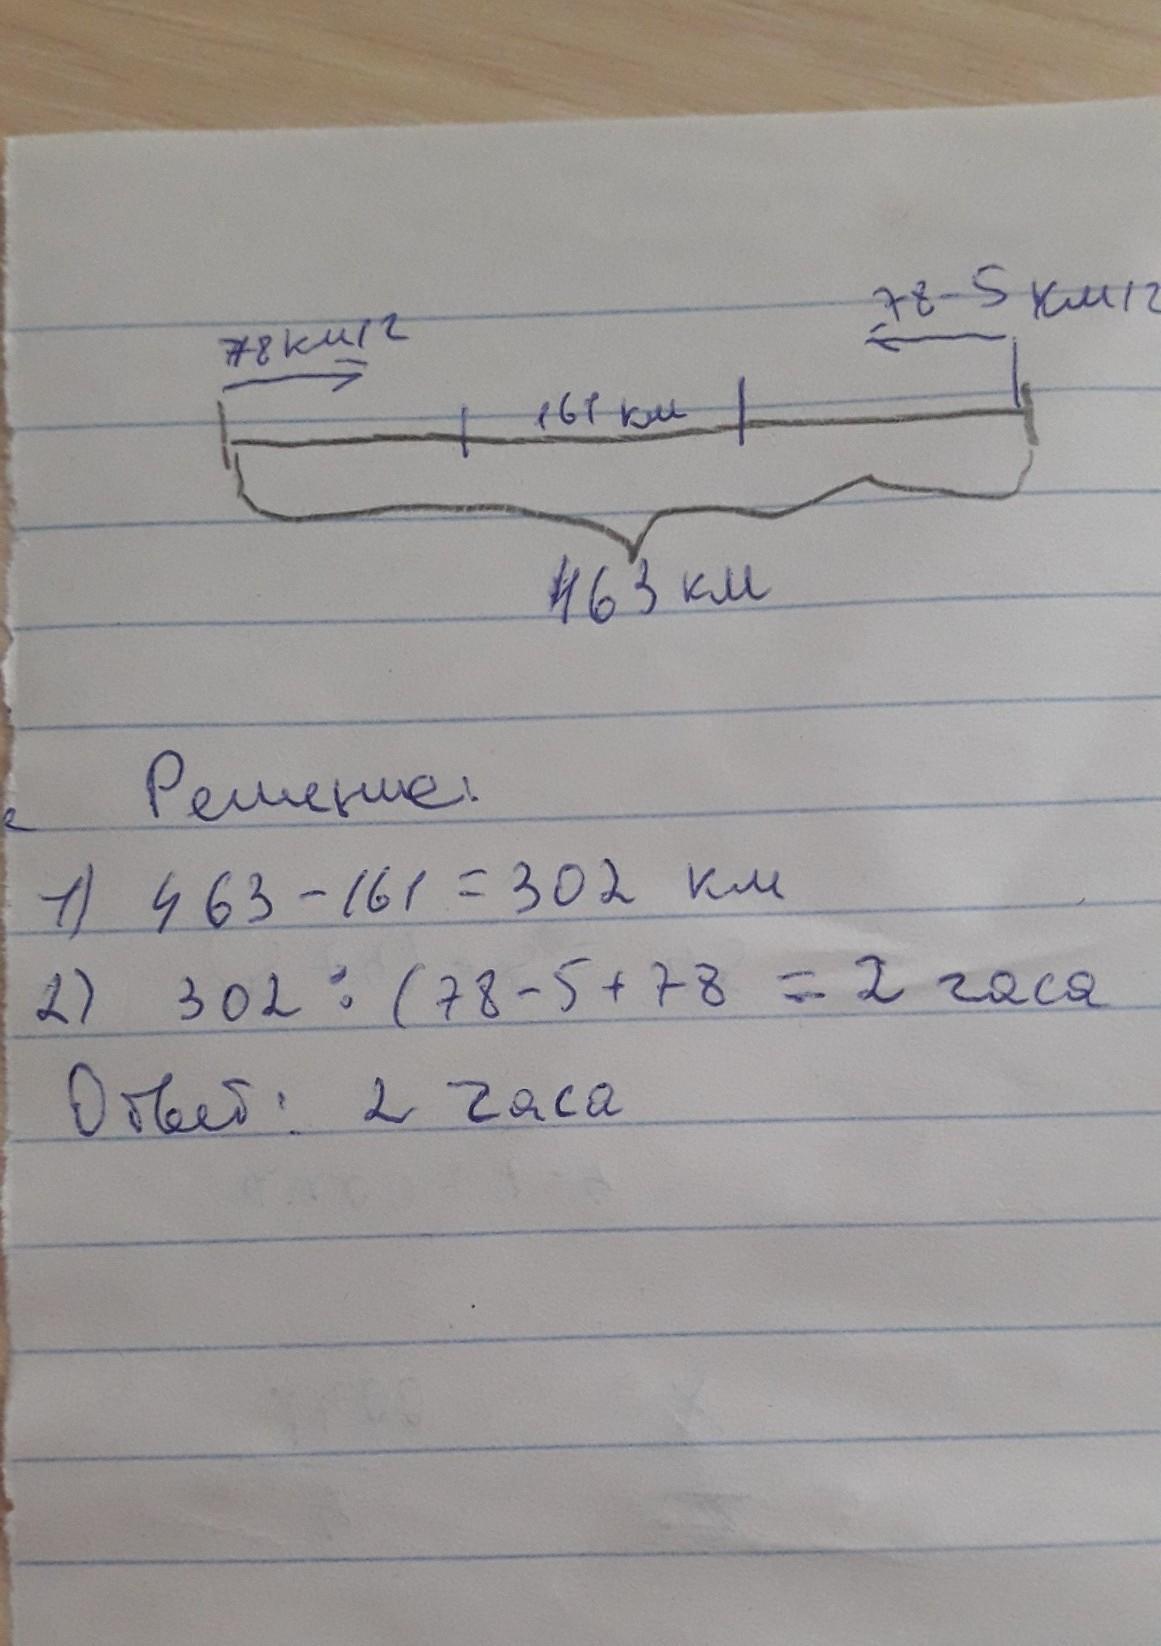 78 км/ч
78-5 км/ч
161 км
463 км
Решение:
1) 463-161=302 км
2) 302 : (78-5+78 = 2 часа
Ответ: 2 часа